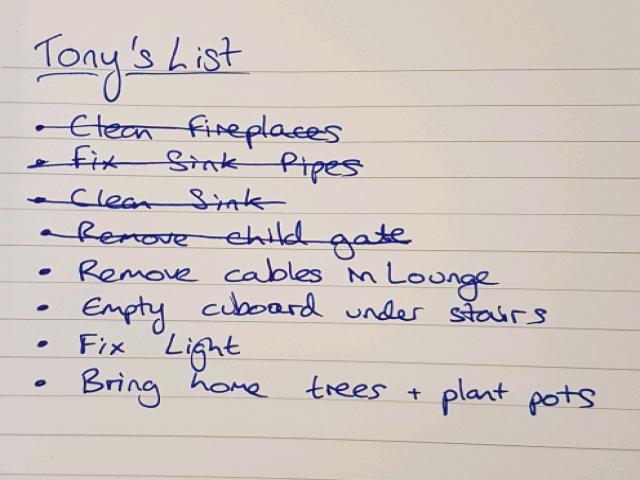 Tony's List
• Clean fireplaces
• Fix Sink Pipes
• Clean Sink
• Remove child gate
• Remove cables in Lounge
• Empty cuboard under stairs
• Fix Light
• Bring home trees + plant pots